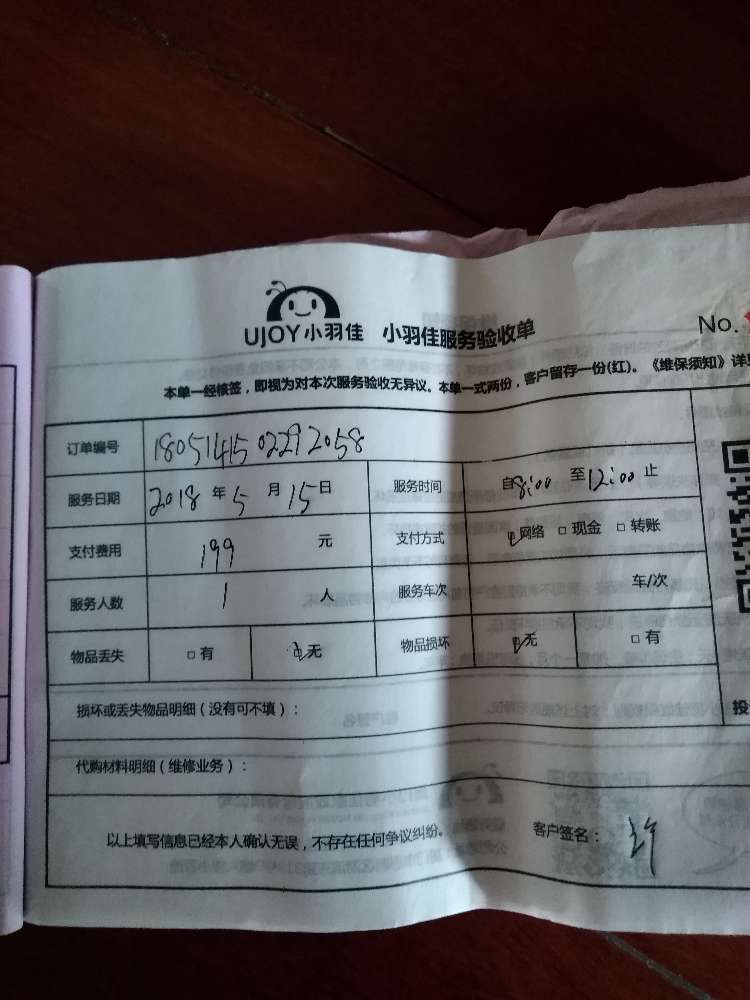 UJOY小羽佳 小羽佳服务验收单
No.
本单一经核签，即视为对本次服务验收无异议。本单一式两份，客户留存一份(红)。《维保须知》详
订单编号 1805141502292058
服务日期 2018 年 5 月 15 日 服务时间 自8:00 至12:00 止
支付费用 199 元 支付方式 ☑网络 □现金 □转账
服务人数 1 人 服务车次 车/次
物品丢失 □有 ☑无 物品损坏 ☑无 □有
损坏或丢失物品明细（没有可不填）：
投
代购材料明细（维修业务）：
以上填写信息已经本人确认无误，不存在任何争议纠纷。 客户签名：